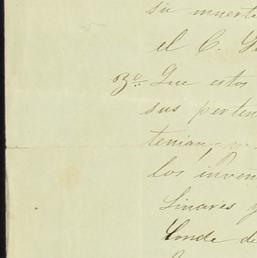 su muerte
el C.
3o. Que estos
sus perten
tenian,
los inven
Linares y
Conde de